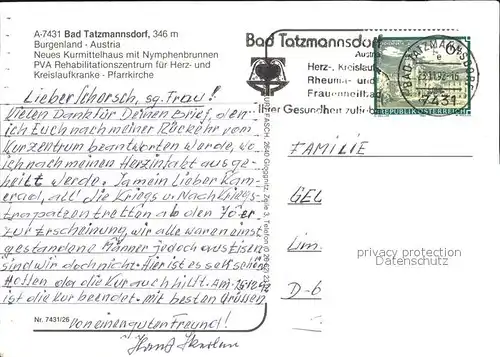 A-7431 Bad Tatzmannsdorf, 346 m
Burgenland - Austria
Neues Kurmittelhaus mit Nymphenbrunnen
PVA Rehabilitationszentrum für Herz- und
Kreislaufkranke - Pfarrkirche
Lieber Schorsch, sg. Frau!
Vielen Dank für Deinen Brief, den
ich Euch nach meiner Rückehr vom
Kurzentrum beantworten werde, wo
ich nach meinen Herzinfakt ausge-
heilt werde. Ja mein Lieber Kam-
erad, all' die Kriegs u. Nachkriegs-
strapatzen tretten ab den 70er
zur Erscheinung, wir alle waren einst
gestandene Männer jedoch aus Eisen
sind wir doch nicht. Hier ist es sehr schön
Hoffen das die Kur auch hilft. Am
ist die Kur beendet. mit besten Grüssen
von einen guten Freund!
Nr. 7431/26
Bad Tatzmannsdorf
Austria
Herz-, Kreislauf
Rheuma- und
Frauenheilbad
Ihrer Gesundheit zuliebe
BAD TATZMANNSDORF
7431
REPUBLIK ÖSTERREICH
FAMILIE
GEL
Um
D-6
privacy protection
Datenschutz